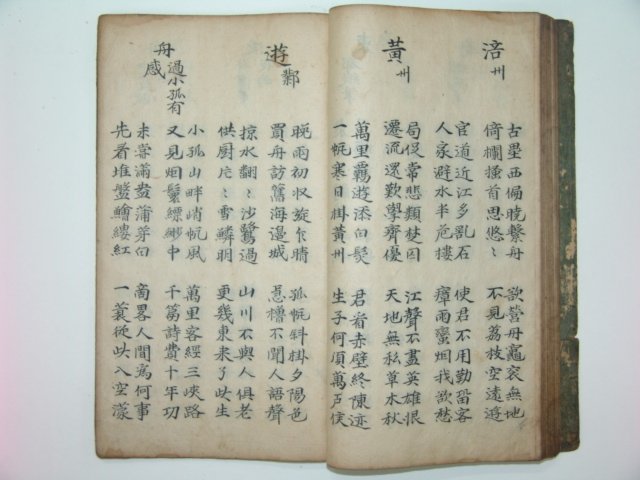 涪州
古壘西偏曉繫舟 欲營舟竈衰無地
倚欄搔首思悠〻 不見荔枝空遠遊
官道近江多亂石 使君不用勤留客
人家避水半危樓 瘴雨蠻烟我欲愁
黃州
局促常悲類楚囚 江聲不盡英雄恨
遷流還歎學齊優 天地無私草木秋
萬里羈遊添白髮 君看赤壁終陳迹
一帆寒日掛黃州 生子何須萬戶侯
遊鄞
晚雨初收旋作晴 孤帆斜掛夕陽色
買舟訪舊海邊城 急櫓不聞人語聲
掠水翻〻沙鷺過 山川不與人俱老
供厨片〻雪鱗明 更幾東來了此生
舟過小孤有感
小孤山畔峭帆風 萬里客經三峽路
又見烟鬟縹緲中 千篇詩費十年功
未嘗滿盎蒲芽白 商畧人間爲何事
先看堆盤鱠縷紅 一蓑從此入空濛